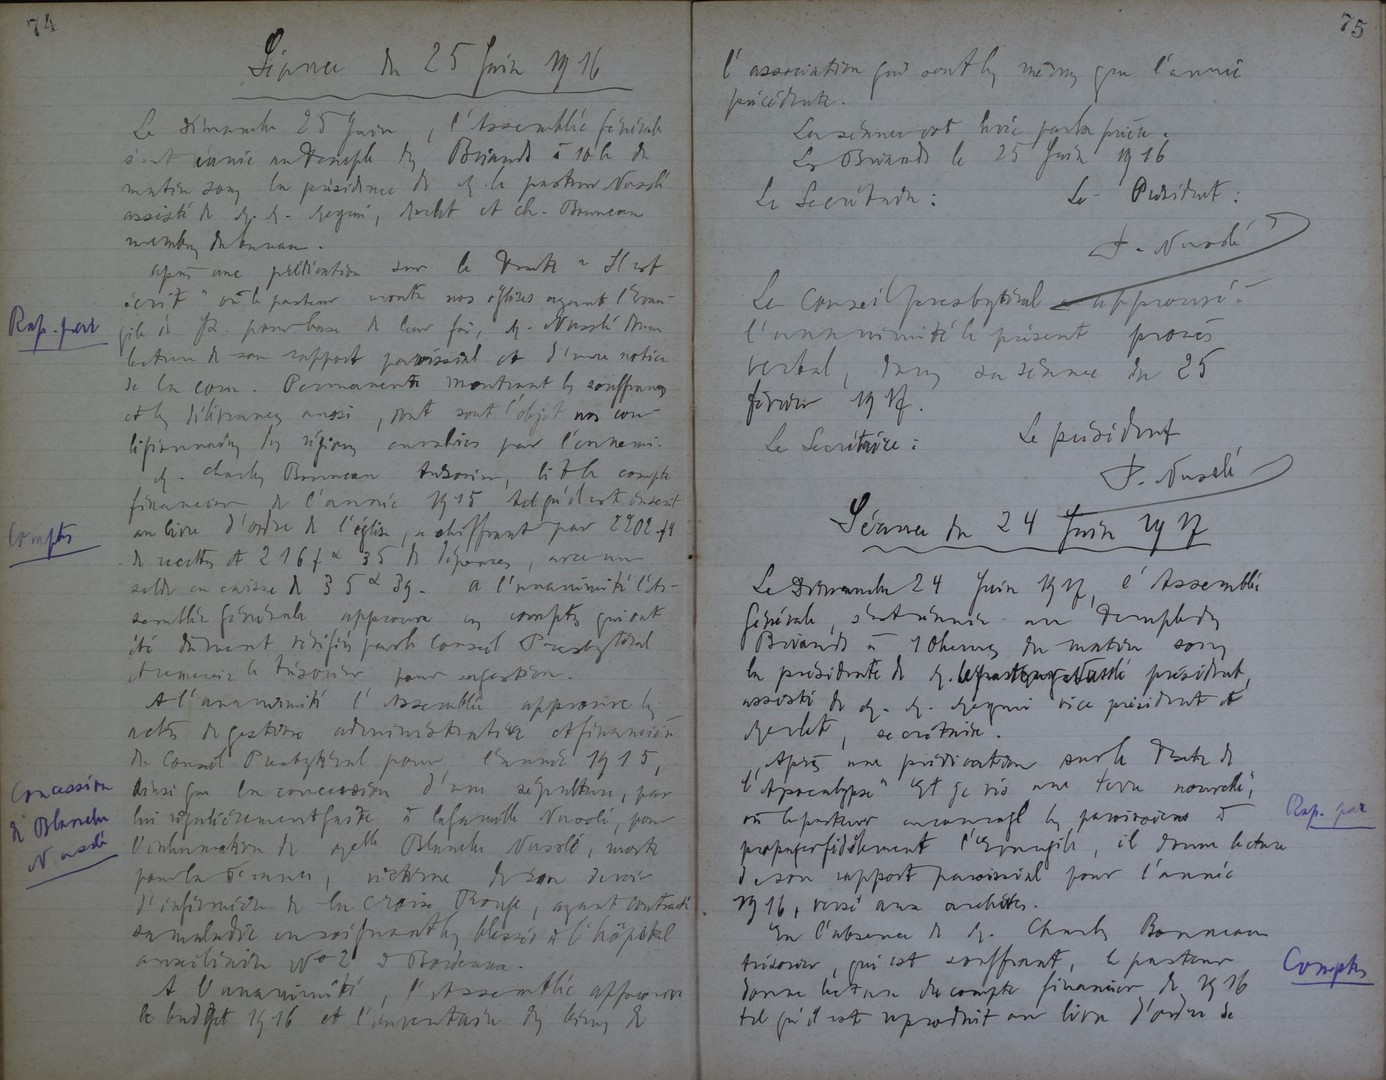 74
Séance du 25 Juin 1916
Le Dimanche 25 Juin, l'Assemblée Générale
s'est réunie au Temple des Briands à 10 h. du
matin sous la présidence de M. le pasteur Nusslé
assisté de M. M. Meynier, et Ch. Bonneau
membres du bureau.
Après une prédication sur le Texte "Il est
écrit" où le pasteur montre nos églises ayant l'Evan-
gile de J.C. pour base de leur foi, M. Nusslé donne
Rap. par
lecture de son rapport paroissial et d'une notice
de la com. Permanente montrant les souffrances
et les délivrances aussi, dont sont l'objet nos core-
ligionnaires des régions envahies par l'ennemi.
M. Charles Bonneau trésorier, lit le compte
financier de l'année 1915 tel qu'il est inscrit
au livre d'ordre de l'église, se chiffrant par 2202.74
Comptes
de recettes et 2167 35 de dépenses, avec un
solde en caisse de 35 39. A l'unanimité l'As-
semblée Générale approuve ces comptes qui ont
été dûment vérifiés par le Conseil Presbytéral
et remercie le trésorier pour sa gestion.
A l'unanimité l'Assemblée approuve les
actes de gestion administrative et financière
du Conseil Presbytéral pour l'année 1915,
Concession
de Blanche
Nusslé
ainsi que la concession d'une sépulture, par
lui régulièrement faite à la famille Nusslé, pour
l'inhumation de Melle Blanche Nusslé, morte
pour la France, victime de son devoir
d'infirmière de la Croix Rouge, ayant contracté
sa maladie en soignant les blessés à l'hôpital
auxiliaire No 2 à Bordeaux.
A l'unanimité, l'Assemblée approuve
le budget 1916 et l'inventaire des biens de
75
l'association qui sont les mêmes que l'année
précédente.
La séance est levée par la prière.
Les Briands le 25 Juin 1916
Le Secrétaire : Le Président :
J. Nusslé
Le Conseil presbytéral a approuvé à
l'unanimité le présent procès
verbal, dans sa séance du 25
février 1917.
Le Secrétaire : Le président
J. Nusslé
Séance du 24 Juin 1917
Le Dimanche 24 Juin 1917, l'Assemblée
Générale, s'est réunie au Temple des
Briands à 10 heures du matin sous
la présidence de M. le pasteur Nusslé président,
assisté de M. M. Meynier vice président et
secrétaire.
Après une prédication sur le Texte de
l'Apocalypse "Et je vis une terre nouvelle",
où le pasteur encourage les paroissiens à
Rap. par
propager fidèlement l'Evangile, il donne lecture
de son rapport paroissial pour l'année
1916, versé aux archives.
En l'absence de M. Charles Bonneau
trésorier, qui est souffrant, le pasteur
Comptes
donne lecture du compte financier de 1916
tel qu'il est reproduit au livre d'ordre de